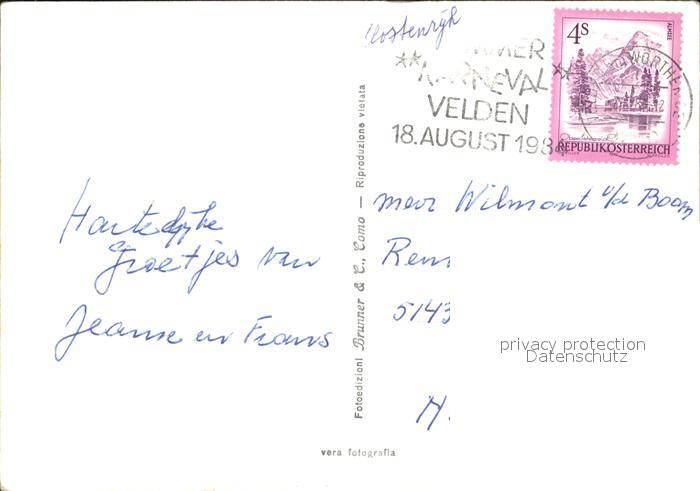 Oostenrijk
MMER
**KARNEVAL**
VELDEN
18. AUGUST 198
4S
ALMSEE
REPUBLIK ÖSTERREICH
WÖRTHER
Hartelijke
Groetjes van
Jeanne en Frans
Fotoedizioni Brunner & C., Como — Riproduzione vietata
meur Wilmont v/d Boom
Rem
5143
privacy protection
Datenschutz
H.
vera fotografia